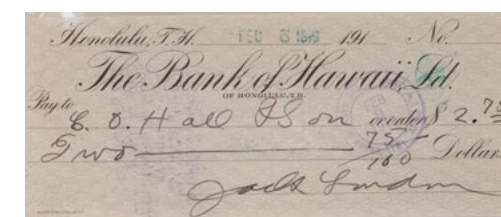 Honolulu, T.H. FEB 3 1916 191 No.
The Bank of Hawaii, Ltd.
OF HONOLULU, T.H.
Pay to
E. O. Hall & Son or order $ 2.75
Two 75/100 Dollars
Jack London